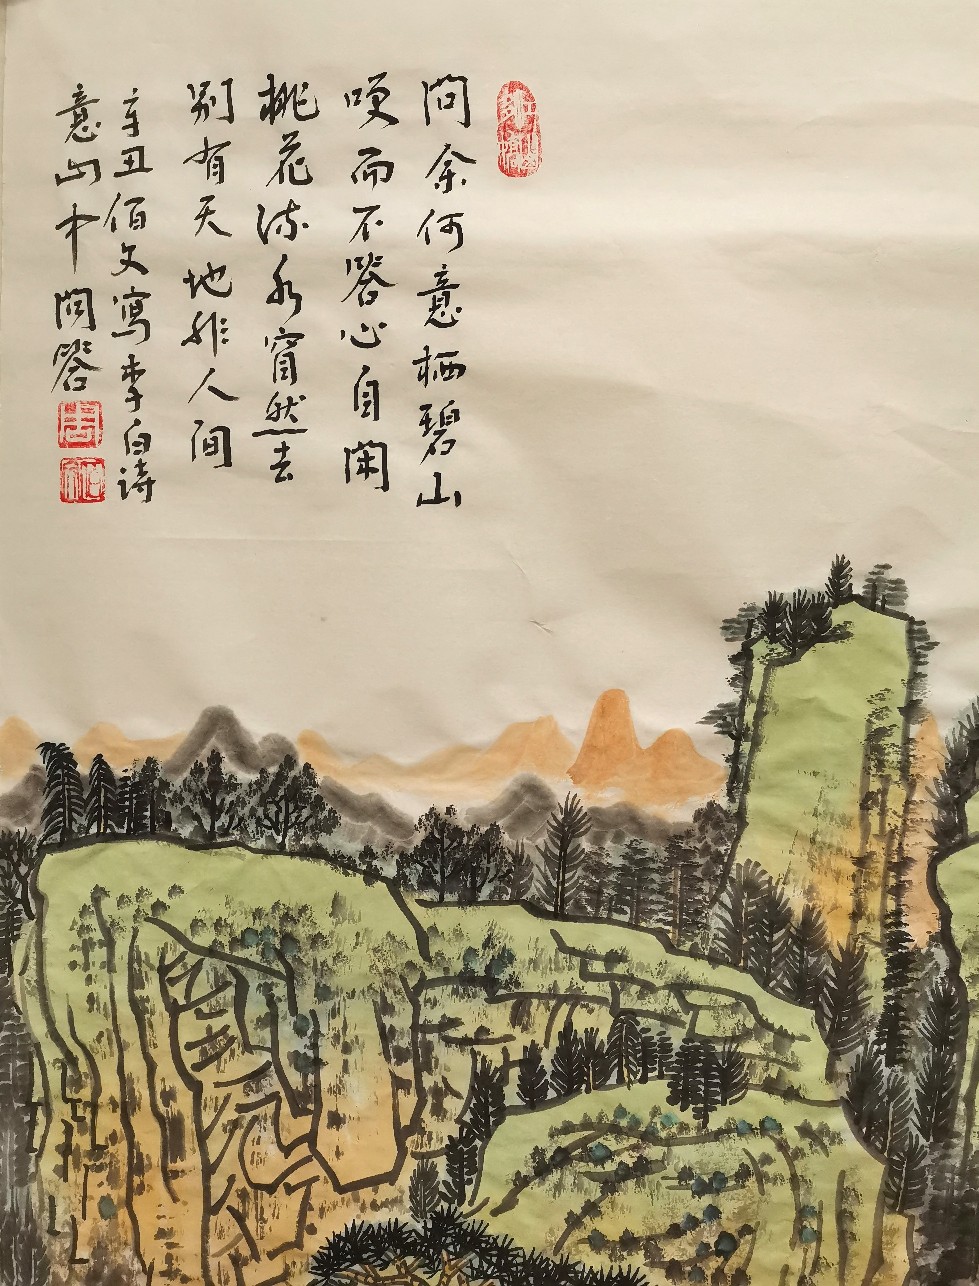 問余何意栖碧山
咲而不答心自閑
桃花流水窅然去
別有天地非人间
辛丑佰文寫李白詩
意山中问答